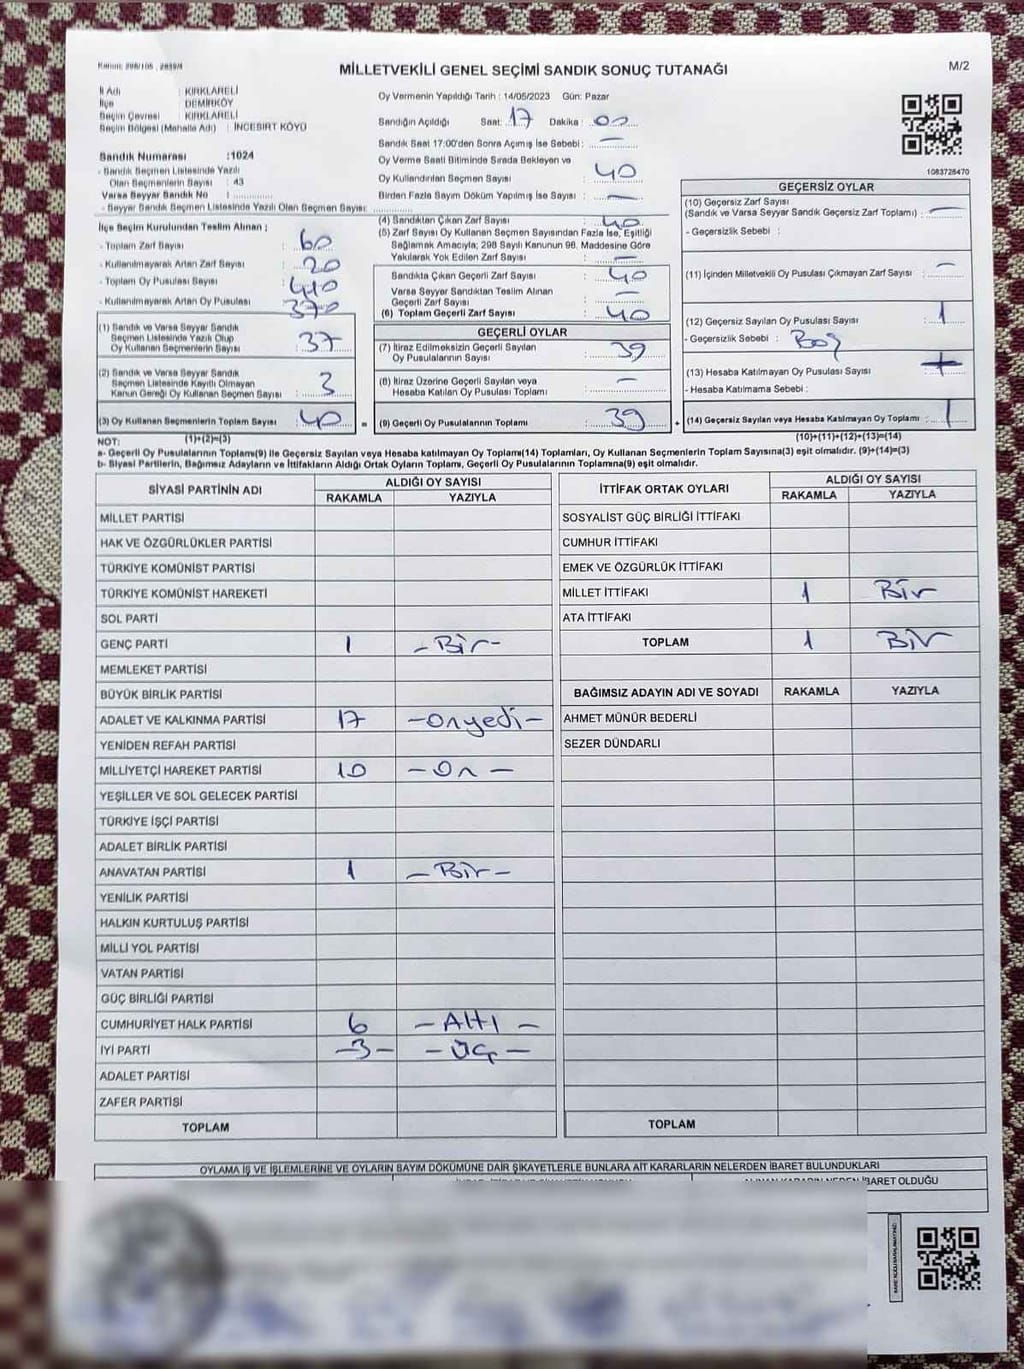 Kanun: 298/105 , 2839/4
MİLLETVEKİLİ GENEL SEÇİMİ SANDIK SONUÇ TUTANAĞI
M/2
İl Adı : KIRKLARELİ
İlçe : DEMİRKÖY
Seçim Çevresi : KIRKLARELİ
Seçim Bölgesi (Mahalle Adı) : İNCESIRT KÖYÜ
Sandık Numarası :1024
- Sandık Seçmen Listesinde Yazılı
Olan Seçmenlerin Sayısı : 43
Varsa Seyyar Sandık No :
- Seyyar Sandık Seçmen Listesinde Yazılı Olan Seçmen Sayısı:
İlçe Seçim Kurulundan Teslim Alınan ;
- Toplam Zarf Sayısı : 60
- Kullanılmayarak Artan Zarf Sayısı : 20
- Toplam Oy Pusulası Sayısı : 410
- Kullanılmayarak Artan Oy Pusulası : 370
(1) Sandık ve Varsa Seyyar Sandık
Seçmen Listesinde Yazılı Olup
Oy Kullanan Seçmenlerin Sayısı : 37
(2) Sandık ve Varsa Seyyar Sandık
Seçmen Listesinde Kayıtlı Olmayan
Kanun Gereği Oy Kullanan Seçmen Sayısı : 3
(3) Oy Kullanan Seçmenlerin Toplam Sayısı : 40
(1)+(2)=(3)
Oy Vermenin Yapıldığı Tarih : 14/05/2023 Gün: Pazar
Sandığın Açıldığı Saat: 17 Dakika : 00
Sandık Saat 17:00'den Sonra Açımış İse Sebebi : —
Oy Verme Saati Bitiminde Sırada Bekleyen ve
Oy Kullandırılan Seçmen Sayısı : 40
Birden Fazla Sayım Döküm Yapılmış İse Sayısı : —
(4) Sandıktan Çıkan Zarf Sayısı : 40
(5) Zarf Sayısı Oy Kullanan Seçmen Sayısından Fazla İse, Eşitliği
Sağlamak Amacıyla; 298 Sayılı Kanunun 98. Maddesine Göre
Yakılarak Yok Edilen Zarf Sayısı : —
Sandıkta Çıkan Geçerli Zarf Sayısı : 40
Varsa Seyyar Sandıktan Teslim Alınan
Geçerli Zarf Sayısı : —
(6) Toplam Geçerli Zarf Sayısı : 40
GEÇERLİ OYLAR
(7) İtiraz Edilmeksizin Geçerli Sayılan
Oy Pusulalarının Sayısı : 39
(8) İtiraz Üzerine Geçerli Sayılan veya
Hesaba Katılan Oy Pusulası Toplamı : —
= (9) Geçerli Oy Pusulalarının Toplamı : 39 +
1083728470
GEÇERSİZ OYLAR
(10) Geçersiz Zarf Sayısı
(Sandık ve Varsa Seyyar Sandık Geçersiz Zarf Toplamı) : —
- Geçersizlik Sebebi :
(11) İçinden Milletvekili Oy Pusulası Çıkmayan Zarf Sayısı : —
(12) Geçersiz Sayılan Oy Pusulası Sayısı : 1
- Geçersizlik Sebebi : Boş
(13) Hesaba Katılmayan Oy Pusulası Sayısı :
- Hesaba Katılmama Sebebi :
(14) Geçersiz Sayılan veya Hesaba Katılmayan Oy Toplamı : 1
(10)+(11)+(12)+(13)=(14)
NOT:
a- Geçerli Oy Pusulalarının Toplamı(9) ile Geçersiz Sayılan veya Hesaba katılmayan Oy Toplamı(14) Toplamları, Oy Kullanan Seçmenlerin Toplam Sayısına(3) eşit olmalıdır. (9)+(14)=(3)
b- Siyasi Partilerin, Bağımsız Adayların ve İttifakların Aldığı Ortak Oyların Toplamı, Geçerli Oy Pusulalarının Toplamına(9) eşit olmalıdır.
SİYASİ PARTİNİN ADI ALDIĞI OY SAYISI
RAKAMLA YAZIYLA
MİLLET PARTİSİ
HAK VE ÖZGÜRLÜKLER PARTİSİ
TÜRKİYE KOMÜNİST PARTİSİ
TÜRKİYE KOMÜNİST HAREKETİ
SOL PARTİ
GENÇ PARTİ 1 - Bir -
MEMLEKET PARTİSİ
BÜYÜK BİRLİK PARTİSİ
ADALET VE KALKINMA PARTİSİ 17 - Onyedi -
YENİDEN REFAH PARTİSİ
MİLLİYETÇİ HAREKET PARTİSİ 10 - On -
YEŞİLLER VE SOL GELECEK PARTİSİ
TÜRKİYE İŞÇİ PARTİSİ
ADALET BİRLİK PARTİSİ
ANAVATAN PARTİSİ 1 - Bir -
YENİLİK PARTİSİ
HALKIN KURTULUŞ PARTİSİ
MİLLİ YOL PARTİSİ
VATAN PARTİSİ
GÜÇ BİRLİĞİ PARTİSİ
CUMHURİYET HALK PARTİSİ 6 - Altı -
İYİ PARTİ -3- - Üç -
ADALET PARTİSİ
ZAFER PARTİSİ
TOPLAM
İTTİFAK ORTAK OYLARI ALDIĞI OY SAYISI
RAKAMLA YAZIYLA
SOSYALİST GÜÇ BİRLİĞİ İTTİFAKI
CUMHUR İTTİFAKI
EMEK VE ÖZGÜRLÜK İTTİFAKI
MİLLET İTTİFAKI 1 Bir
ATA İTTİFAKI
TOPLAM 1 Bir
BAĞIMSIZ ADAYIN ADI VE SOYADI RAKAMLA YAZIYLA
AHMET MÜNÜR BEDERLİ
SEZER DÜNDARLI
TOPLAM
OYLAMA İŞ VE İŞLEMLERİNE VE OYLARIN SAYIM DÖKÜMÜNE DAİR ŞİKAYETLERLE BUNLARA AİT KARARLARIN NELERDEN İBARET BULUNDUKLARI
ALINAN KARARIN NEDEN İBARET OLDUĞU